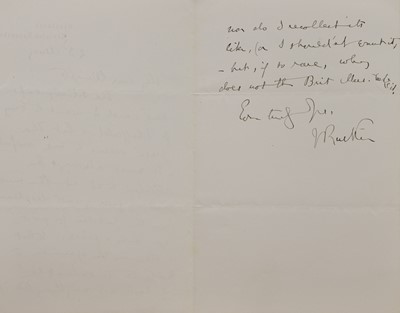 nor do I recollect its
like, (or I shouldn't want it,
- but, if so rare, why
does not the Brit Mus. take it!
Ever truly Yrs.
J Ruskin